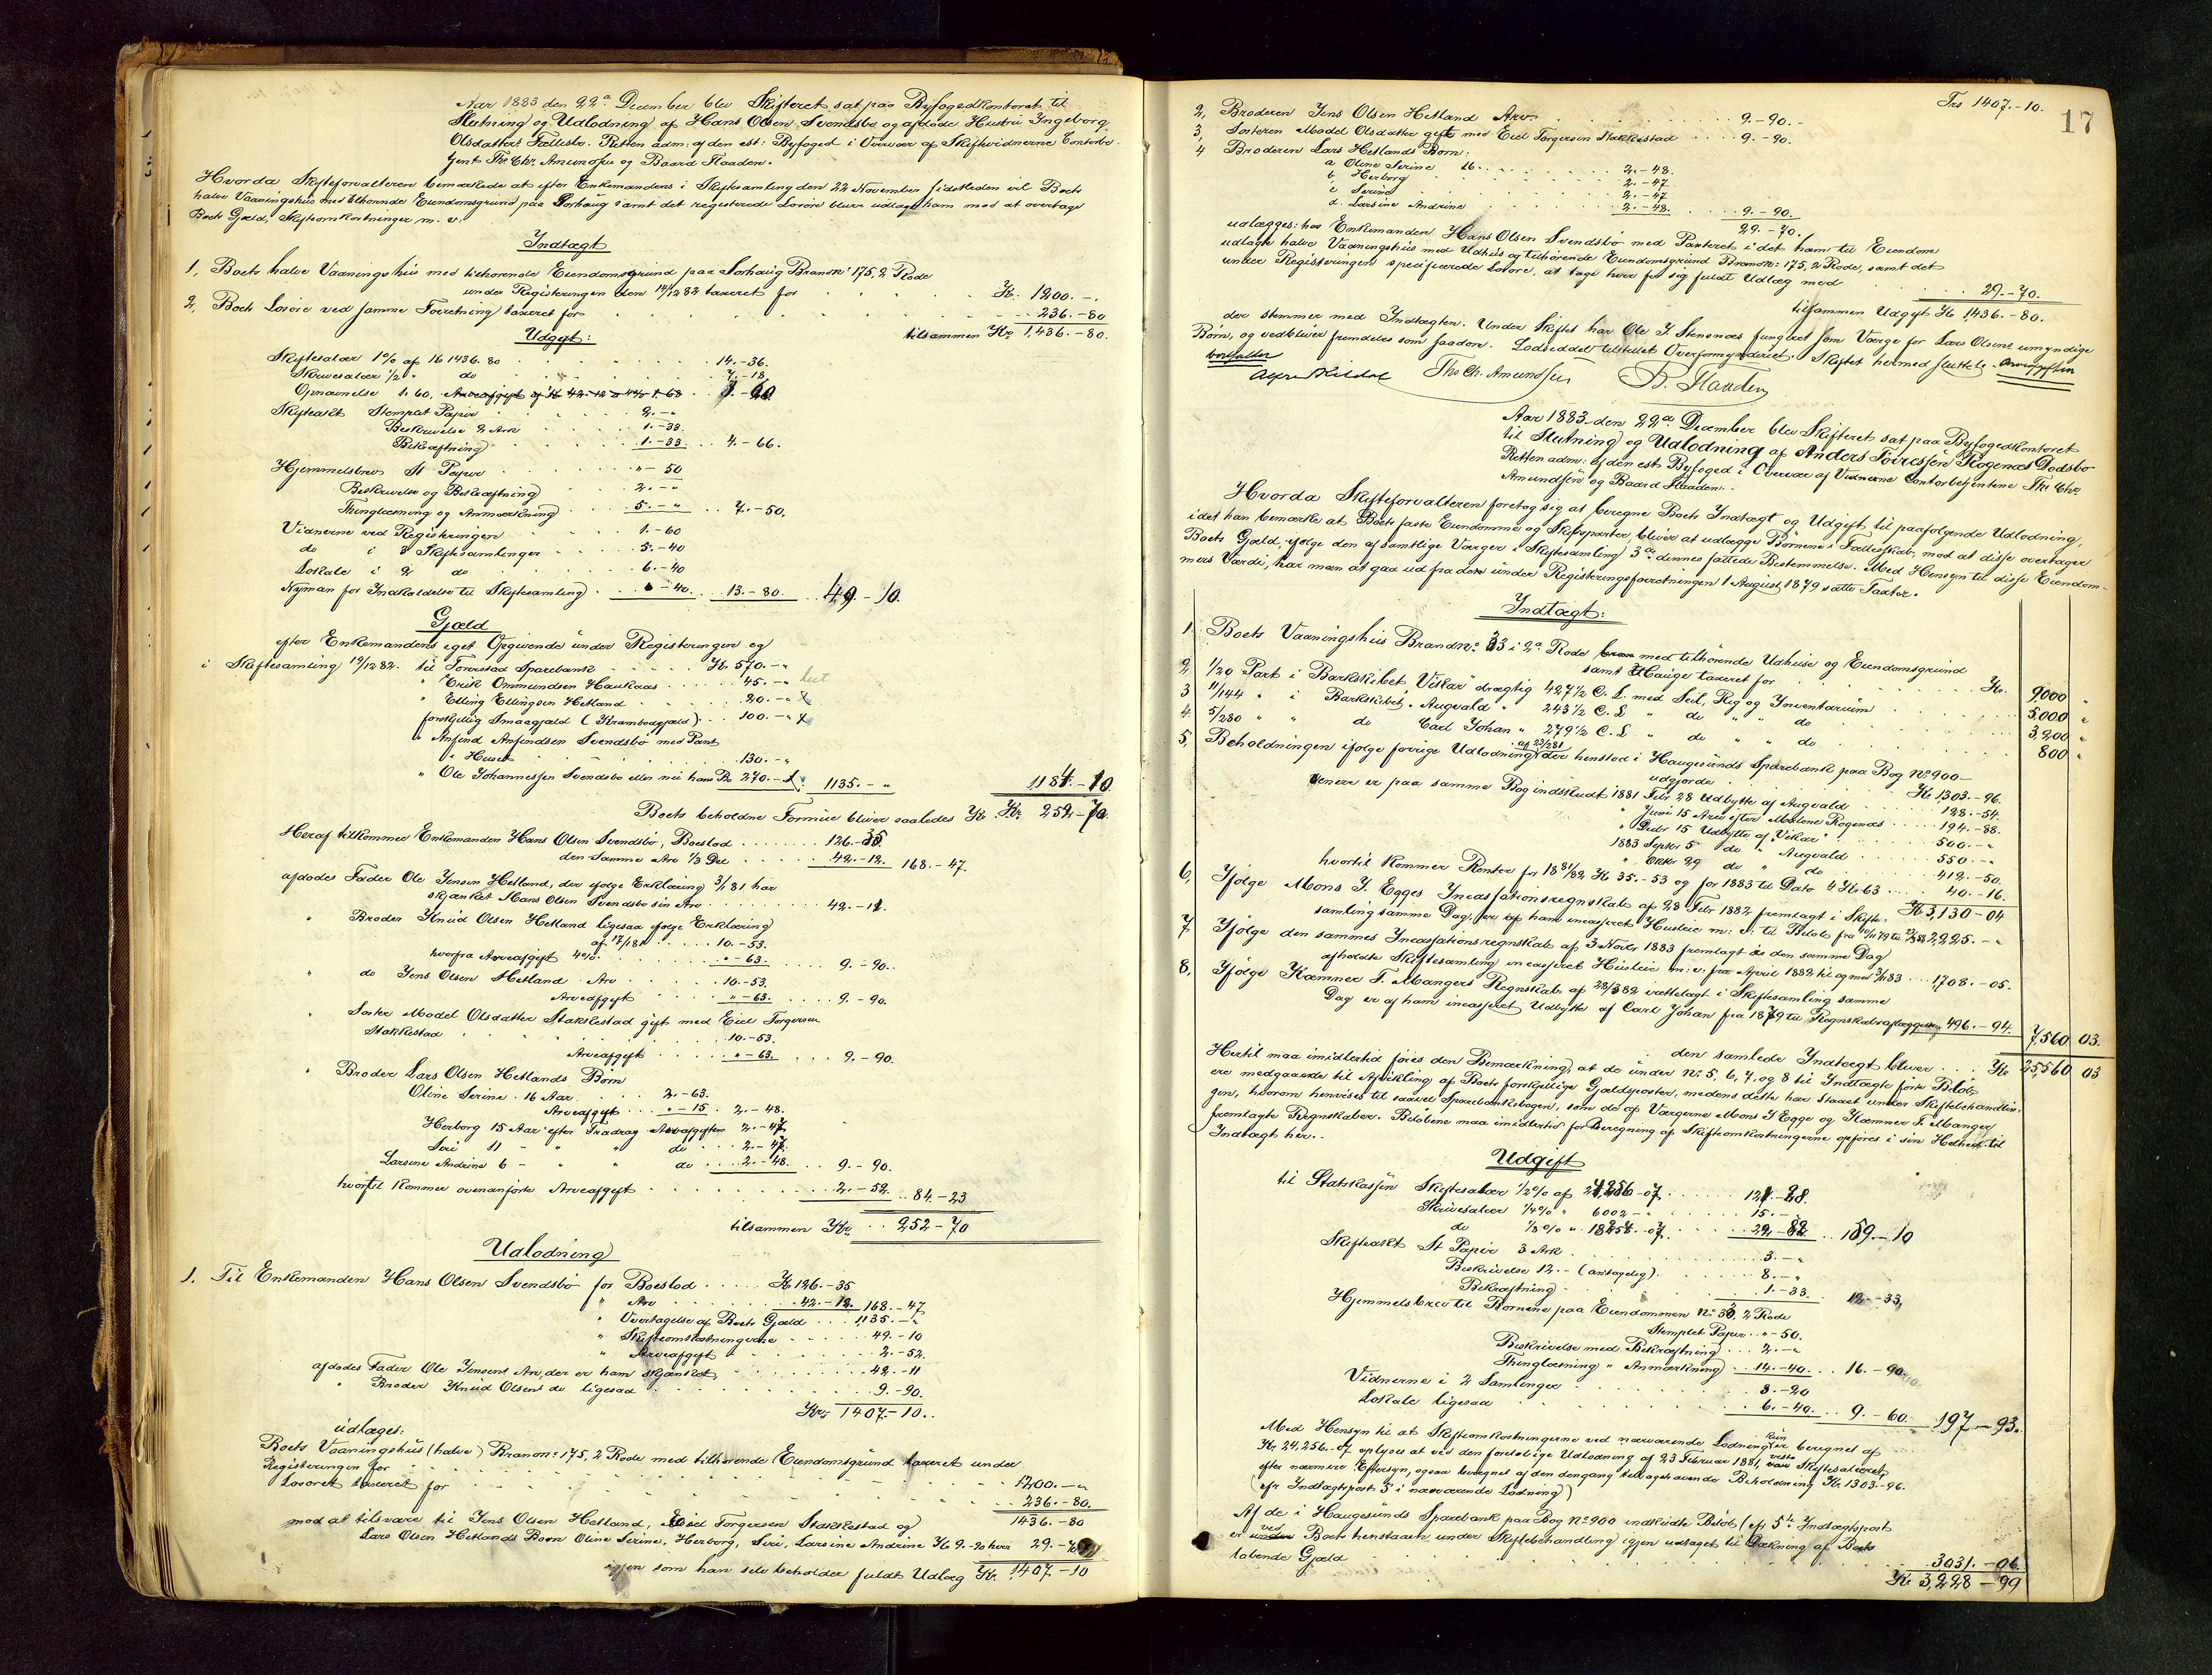 Aar 1883 den 22de December blev Skifteret sat paa Byfogedkontoret til
Slutning og Udlodning af Hans Olsen Svendsbø og afdøde Hustru Ingeborg
Olsdatters Fællesbo. Retten adm. af den est: Byfoged i Overvær af Skiftevidnerne Contorbe-
tjent Th: Chr. Amundsen og Baard Flaaden.
Hvorda Skifteforvalteren bemærkede at efter Enkemandens i Skiftesamling den 22 November sidstleden vil Boets
halve Vaaningshus med tilhørende Eiendomsgrund paa Sørhaug samt det registerede Løsøre blive udlagt ham mod at overtage
Boets Gjæld, Skifteomkostninger m. v.
Indtægt
1, Boets halve Vaaningshus med tilhørende Eiendomsgrund paa Sørhaug Brandn: 175, 2 Rode
under Registeringen den 12/12 82 taxeret for Kr. 1200.-.
2, Boets Løsøre ved samme Forretning taxeret for 236.-80
tilsammen Kr 1,436.-80.
Udgift:
Skiftesalær 1% af 1436.80 14.-36.
Skrivesalær 1/2 " do 7.-18.
Opnævnelse 1.60,
Skifteakt Stemplet Papir 2.-"
Beskrivelse 2 Ark 1.-33.
Bekræftning 1.-33. 4.-66.
Hjemmelsbrev St Papir "-50
Beskrivelse og Bekræftning 2.-"
Thinglæsning og Anmærkning 5.-" 7.-50.
Vidnerne ved Registeringen 1.-60
do i Skiftesamlinger 5.-40
Lokale i 2 do 6.-40
Nyman for Indkaldelse til Skiftesamling -40. 13.-80. 49.-10.
Gjæld
efter Enkemandens eget Opgivende under Registeringen og
i Skiftesamling 12/12 82. til Torvestad Sparebank Kr. 570.-"
" Erik Ommundsen Haukaas 45.-"
" Elling Ellingsen Hetland 20.-"
forskjellig Smaagjæld (Krambodgjæld) 100.-"
" Anfind Anfindsen Svendsbø med Pant
i Huset 130.-"
" Ole Johannessen Svendsbø eller nu hans Bo 270.- 1135.-" 1184.-10
Boets beholdne Formue bliver saaledes Kr. 252.-70.
Heraf tilkommer Enkemanden Hans Olsen Svendsbø, Boeslod 126.-35
den samme Arv 1/3 Del 42.-12. 168.-47.
afdødes Fader Ole Jensen Hetland, der ifølge Erklæring 3/1 81 har
skjænket Hans Olsen Svendsbø sin Arv 42.-11.
" Broder Knud Olsen Hetland ligesaa ifølge Erklæring
af 17/1 81 10.-53.
hvorfra Arveafgift 4% "-63. 9.-90.
" do Jens Olsen Hetland Arv 10.-53.
Arveafgift "-63. 9.-90.
" Søster Madel Olsdatter Stakkestad gift med Eiel Torgersen
Stakkestad 10.-53.
Arveafgift "-63. 9.-90.
" Broder Lars Olsen Hetlands Børn
Oline Serine 16 Aar 2.-63.
Arveafgift "-15 2.-48.
Herborg 15 Aar efter Fradrag Arveafgiften 2.-47
Siri 11 - " " do 2.-47.
Larsine Andrine 6 - " " do 2.-48. 9.-90.
hvortil kommer ovenanførte Arveafgift 2.-52 84.-23
tilsammen Kr. 252-70
Udlodning
1. Til Enkemanden Hans Olsen Svendsbø for Boeslod Kr 126.-35
" Arv 42.-12. 168.-47
" Overtagelse af Boets Gjæld 1135.-"
" Skifteomkostningerne 49.-10
" Arveafgift 2.-52.
afdødes Fader Ole Jensens Arv, der er ham skjænket 42.-11
" Broder Knud Olsens do ligesaa 9.-90.
Kr 1407.-10.
udlages:
Boets Vaaningshus (halve) Brandn: 175, 2 Rode med tilhørende Eiendomsgrund taxeret under
Registeringen for 1200.-"
Løsøret taxeret for 236.-80.
1436.-80
mod at tilsvare til Jens Olsen Hetland, Eiel Torgersen Stakkestad og
Lars Olsen Hetlands Børn Oline Serine, Herborg, Siri, Larsine Andrine Kr 9.-90 hver 29.-70
igjen som han selv beholder fuldt Udlæg Kr. 1407-10
17
Trs 1407.-10.
2, Broderen Jens Olsen Hetland Arv 9.-90.-
3, Søsteren Madel Olsdatter gift med Eiel Torgersen Stakkestad 9.-90.
4 Broderen Lars Hetlands Børn:
a Oline Serine 16 2.-48.
b Herborg 2.-47
c Serine 2.-47
d. Larsine Andrine 2.-48. 9.-90.
29.-70.
udlægges: hos Enkemanden Hans Olsen Svendsbø med Panteret i det ham til Eiendom
udlagte halve Vaaningshus med Udhus og tilhørende Eiendomsgrund Brandn: 175, 2 Rode, samt det
under Registeringen specificerede Løsøre, at tage hver for sig fuldt Udlæg med 29.-70.
tilsammen Udgift Kr 1436.-80.
der stemmer med Indtægten. Under Skiftet har Ole J. Stensnæs fungeret som Værge for Lars Olsens umyndige
Børn, og vedbliver fremdeles som saadan. Lodseddel tilstillet Overformynderiet. Skiftet hermed sluttet.
Tho Ch. Amundsen B. Flaaden
Aar 1883 den 22de December blev Skifteret sat paa Byfogedkontoret
til Slutning og Udlodning af Anders Tørressen Rogenæs Dødsbo
Retten adm: af den est Byfoged i Overvær af Vidnerne Contorbetjentene Th: Chr.
Amundsen og Baard Flaaden.
Hvorda Skifteforvalteren foretog sig at beregne Boets Indtægt og Udgift til paafølgende Udlodning,
idet han bemærker at Boets faste Eiendomme og Skibsparter, bliver at udlægge Børnene i Fællesskab, mod at disse overtager
Boets Gjæld, ifølge den af samtlige Værger i Skiftesamling 3de dennes fattede Bestemmelse. Med Hensyn til disse Eiendom-
mers Værdi, har man at gaa ud fra den under Registeringsforretningen 1 August 1879 satte Taxter.
Indtægt:
1. Boets Vaaningshus Brandn: 33 i 2de Rode med tilhørende Udhuse og Eiendomsgrund
samt Hauge taxeret for Kr. 9000 "
2 1/20 Part i Barkskibet "Vikar" drægtig 427 1/2 C. L. med Seil, Rig og Inventarium 5,000 "
3 11/144 " i Barkskibet "Augvald" 243 1/2 C. L " do " " do 3,200 "
4. 5/280 " " do Carl Johan " 279 1/2 C. L " do " " do 800 "
5, Beholdningen ifølge forrige Udlodning af 23/2 81 der henstod i Haugesunds Sparebank paa Bog No 900 -
udgjorde Kr. 1303.-96.
senere er paa samme Bog indskudt 1881 Febr 28 Udbytte af Augvald 128.-54.
" Juni 15 Arv efter Malene Rogenæs 194.-88.
" Decbr 15 Udbytte af "Vikar" 500.-"
1883 Septbr 5 do " Augvald 550.-"
" Oktbr 29 do " do 412.-50.
hvortil kommer Renter for 1881/82 Kr 35.-53 og for 1883 til Dato 4 Kr 63 40.-16.
Kr 3,130-04
6, Ifølge Mons J. Egges Incassationsregnskab af 28 Febr 1882 fremlagt i Skifte-
samling samme Dag, er af ham incasseret Husleie m: v: til Beløb 2,225.-"
7 Ifølge den sammes Incassationsregnskab af 3 Novbr 1883 fremlagt i den samme Dag
afholdte Skiftesamling incasseret Husleie m: v: fra April 1882 til og med 3/11 83 1,708.-05.
8, Ifølge Kæmner F. Mangers Regnskab af 28/3 82 irettelagt i Skiftesamling samme
Dag er af ham incasseret Udbytte af Carl Johan fra 1879 til Regnskabsaflæggelsen 496.-94. 7,560 03.
den samlede Indtægt bliver Kr 25,560 03
Hertil maa imidlertid føies den Bemærkning, at de under No 5, 6, 7, og 8 til Indtægt førte Beløb
ere medgaaede til Afvikling af Boets forskjellige Gjældsposter, medens dette har staaet under Skiftebehandlin-
gen, hvorom henvises til saavel Sparebanksbogen, som de af Værgerne Mons J Egge og Kæmner F. Manger
fremlagte Regnskaber. Beløbene maa imidlertid for Beregning af Skifteomkostningerne opføres i sin Helhed til
Indtægt her.
Udgift
til Statskassen Skiftesalær 1/2% af 24,256-07 121.-28.
Skrivesalær 1/4% " 6002 -" 15.-"
do 1/8% " 18254.-07 22.-82 159.-10
Skifteakt St Papir 3 Ark 3.-"
Beskrivelse 12.- (antagelig) 8.-"
Bekræftning 1.-33. 12.-33,
Hjemmelsbrev til Børnene paa Eiendommen No 33, 2 Rode
Stemplet Papir "-50.
Beskrivelse med Bekræftning 2.-"
Thinglæsning " Anmærkning 14.-40. 16.-90.
Vidnerne i 2 Samlinger 3.-20
Lokale ligesaa 6.-40. 9.-60. 197.-93.
Med Hensyn til at Skifteomkostningerne ved nærværende Lodning kun er beregnet af
Kr 24,256.-07 oplyses at ved den foreløbige Udlodning af 23 Februar 1881, Skiftesalæret,
efter nærmere Eftersyn, ogsaa beregnet af den dengang tilbageværende Beholdning Kr. 1303.-96.
(cfr Indtægtspost 5 i nærværende Lodning)
Af de i Haugesunds Sparebank paa Bog No 900 indskudte Beløb (cfr 5te Indtægtspost
er ved Boets henstaaen under Skiftebehandling igjen udtaget til Dækning af Boets
løbende Gjæld 3031.-06.
Kr 3,228-99